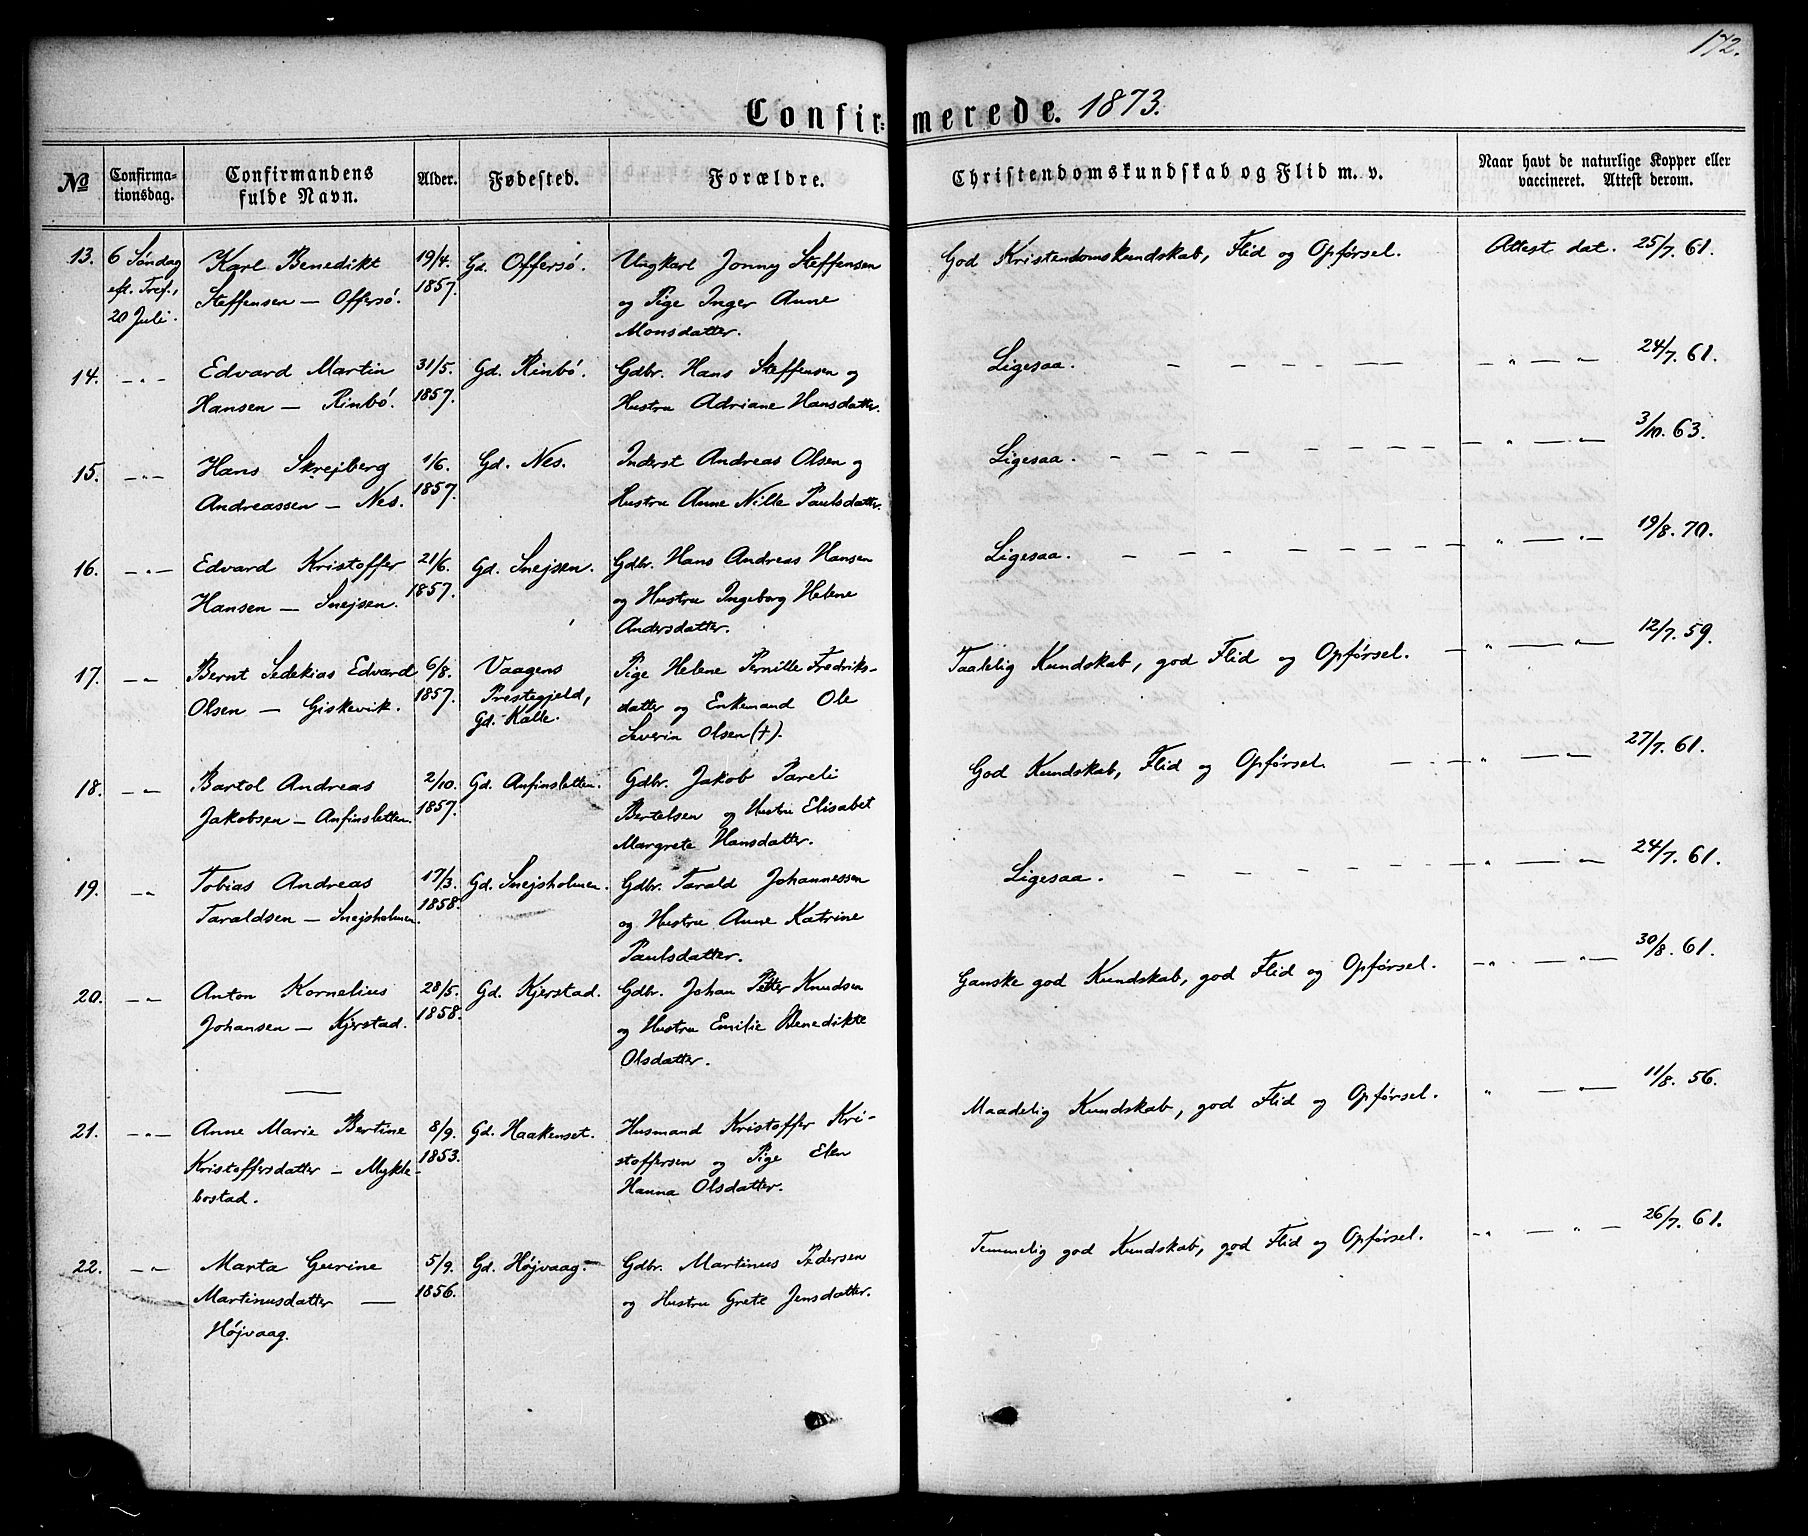 172.
Confirmerede. 1873.
No
Confirmationsdag.
Confirmandens fulde Navn.
Alder.
Fødested.
Forældre.
Christendomskundskab og Flid m. v.
Naar havt de naturlige Kopper eller vaccineret. Attest derom.
13. 6 Søndag Karl Benedikt 19/4. Gd. Offersø. Ungkarl Jonny Steffensen God Kristendomskundskab, Flid og Opførsel. Attest dat. 25/7. 61.
eft. Tref., Steffensen — Offersø. 1857. og Pige Inger Anne
20 Juli. Monsdatter.
14. — „ — Edvard Martin 31/5. Gd. Rinbø. Gdbr. Hans Steffensen og Ligesaa. — — — — — „ — „ — 24/7. 61.
Hansen — Rinbø. 1857. Hustru Adriane Hansdatter.
15. — „ — Hans Skrejberg 1/6. Gd. Nes. Inderst Andreas Olsen og Ligesaa. — — — — — „ — „ — 3/10. 63.
Andreassen — Nes. 1857. Hustru Anne Nille Paulsdatter.
16. — „ — Edvard Kristoffer 21/6. Gd. Snejsen. Gdbr. Hans Andreas Hansen Ligesaa. — — — — — „ — „ — 19/8. 70.
Hansen — Snejsen. 1857. og Hustru Ingeborg Helene
Andersdatter.
17. — „ Bernt Sedekias Edvard 6/8. Vaagens Pige Helene Pernille Fredriks- Taalelig Kundskab, god Flid og Opførsel. — „ — „ — 12/7. 59.
Olsen — Giskevik. 1857. Prestegjeld, datter og Enkemand Ole
Gd. Kalle. Severin Olsen (+).
18. — „ Bartol Andreas 2/10. Gd. Anfinsletten. Gdbr. Jakob Pareli God Kundskab, Flid og Opførsel. — „ — „ — 27/7. 61.
Jakobsen — Anfinsletten. 1857. Bertelsen og Hustru Elisabet
Margrete Hansdatter.
19. — „ Tobias Andreas 17/3. Gd. Snejsholmen. Gdbr. Tarald Johannessen Ligesaa. — — — — — „ — „ — 24/7. 61.
Taraldsen — Snejsholmen. 1858. og Hustru Anne Katrine
Paulsdatter.
20. — „ Anton Kornelius 28/5. Gd. Kjerstad. Gdbr. Johan Petter Knudsen Ganske god Kundskab, god Flid og Opførsel. — „ — „ — 30/8. 61.
Johansen — Kjerstad. 1858. og Hustru Emilie Benedikte
Olsdatter.
21. — „ — Anne Marie Bertine 8/9. Gd. Haakenset. Husmand Kristoffer Kri- Maadelig Kundskab, god Flid og Opførsel. „ — „ — 11/8. 56.
Kristoffersdatter — Mykle- 1853. stoffersen og Pige Elen
bostad. Hanna Olsdatter.
22. — „ Marta Gurine 5/9. Gd. Højvaag. Gdbr. Martinus Pedersen Temmelig god Kundskab, god Flid og Opførsel. — „ — „ — 26/7. 61.
Martinusdatter — 1856. og Hustru Grete Jensdatter.
Højvaag.